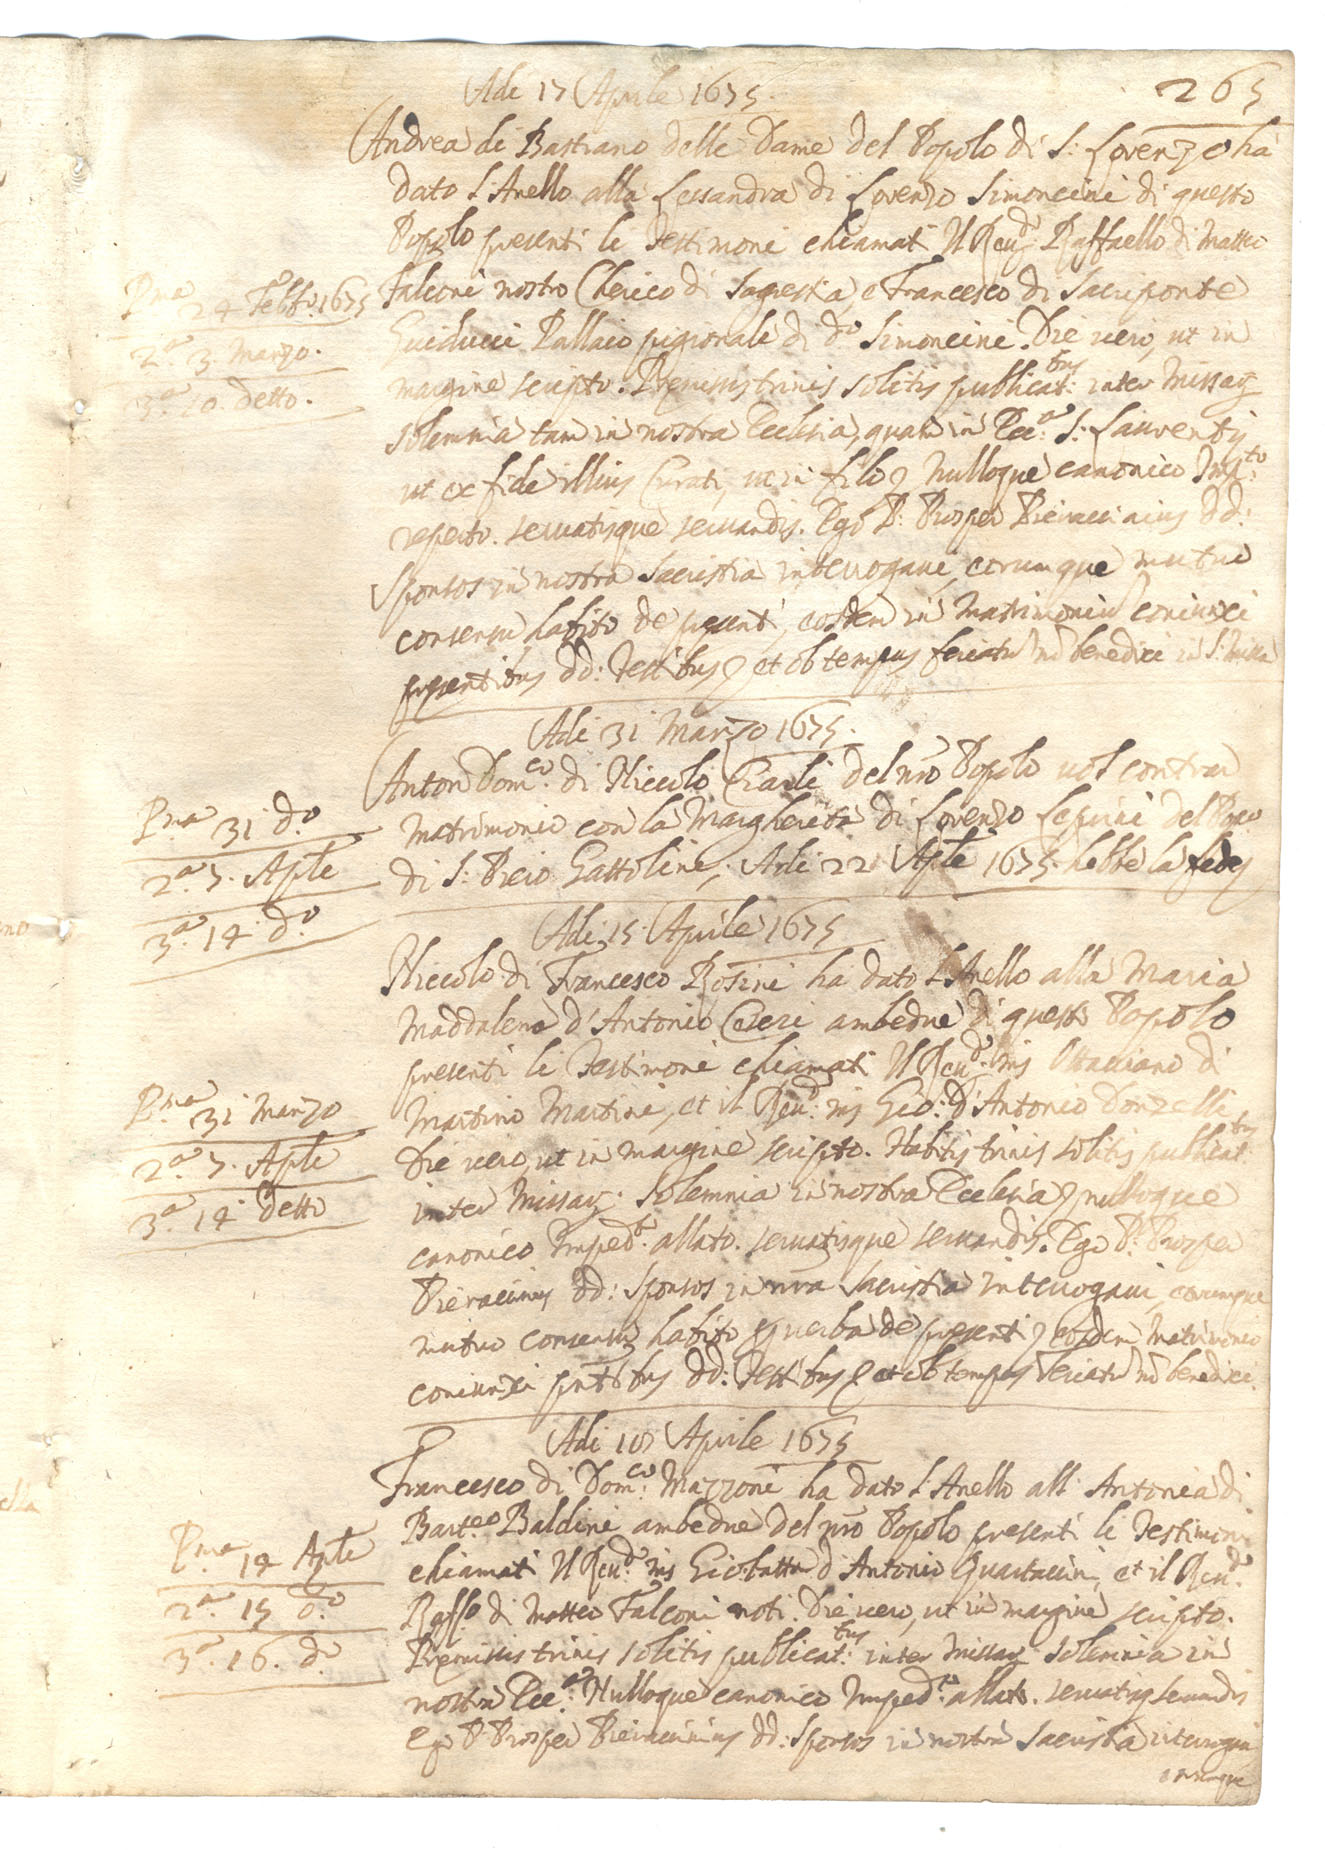 265
Adi 17 Aprile 1675.
Andrea di Bastiano delle Dame del Popolo di S: Lorenzo ha
dato l'Anello alla Lessandra di Lorenzo Simoncini di questo
Popolo presenti li Testimoni chiamati Il Reud.º Raffaello di Matteo
Falconi nostro Cherico di Sagrestia, e Francesco di Sacriponte
Guiducci Pallaio pigionale di d.º Simoncini. Die uero, ut in
margine scripto. Premissis trinis solitis publicat:bus inter Missarz
solemnia tam in nostra Ecclesia, quam in Ecc:a S: Laurentij
ut ex fide illius Curati, ut in filo, Nulloque canonico Imp:to
reperto. seruatisque seruandis. Ego P: Prosper Pieraccinius dd:
Sponsos in nostra Sacristia interrogaui, eorumque mutuo
consensu habito de presenti, eosdem in Matrimoniu coniunxi
presentibus dd: Testibus, et ob tempus feriatu nõ benedixi in S: Missa
Pma 24 Febb.º 1675
2.a 3. Marzo.
3.a 10. detto.
Adi 31 Marzo 1675.
Anton Dom:co di Niccolo Ciarli del nrõ Popolo uol contrar
Matrimonio con la Margherita di Lorenzo del Popo
di S: Piero Gattolini, Adi 22 Aple 1675. hebbe la fede
Pma 31 d.º
2.a 7. Aple
3.a 14 d.º
Adi 15 Aprile 1675
Niccolo di Francesco Rosini ha dato l'Anello alla Maria
Maddalena d'Antonio Ceseri ambedue di questo Popolo
presenti li Testimoni chiamati Il Reud:º ms Ottauiano di
Martino Martini, et il Reud:º ms Gio: d'Antonio Donzelli
Die uero, ut in margine scripto. Habitis trinis solitis publicat:bus
inter Missarz: solemnia in nostra Ecclesia, nulloque
canonico Imped:to allato. seruatisque seruandis. Ego P: Prosper
Pieraccinius dd: Sponsos in nrã Sacristia interrogaui, eorumque
mutuo consensu habito p uerba de presenti, eosdem Matrimonio
coniunxi pntibus dd: Testibus, et ob tempus feriatu nõ benedixi.
Pma 31 Marzo
2.a 7. Aple
3.a 14 detto
Adi Aprile 1675
Francesco di Dom:co Mazzoni ha dato l'Anello all'Antonia di
Bart:eo Baldini ambedue del nrõ Popolo presenti li Testimoni
chiamati Il Reud:º ms Giobatta d'Antonio Quartaccini, et il Reud.º
Raff:º di Matteo Falconi noti. Die uero, ut in margine scripto.
Premissis trinis solitis publicat:bus inter Missarz solemnia in
nostra Ecc:a Nulloque canonico Imped:to allato. seruatisq seruandis
Ego P: Prosper Pieraccinius dd: Sponsos in nostra Sacristia interrogaui
eorumque
Pma 14 Aple
2.a 15 d.º
3.a 16. d.º